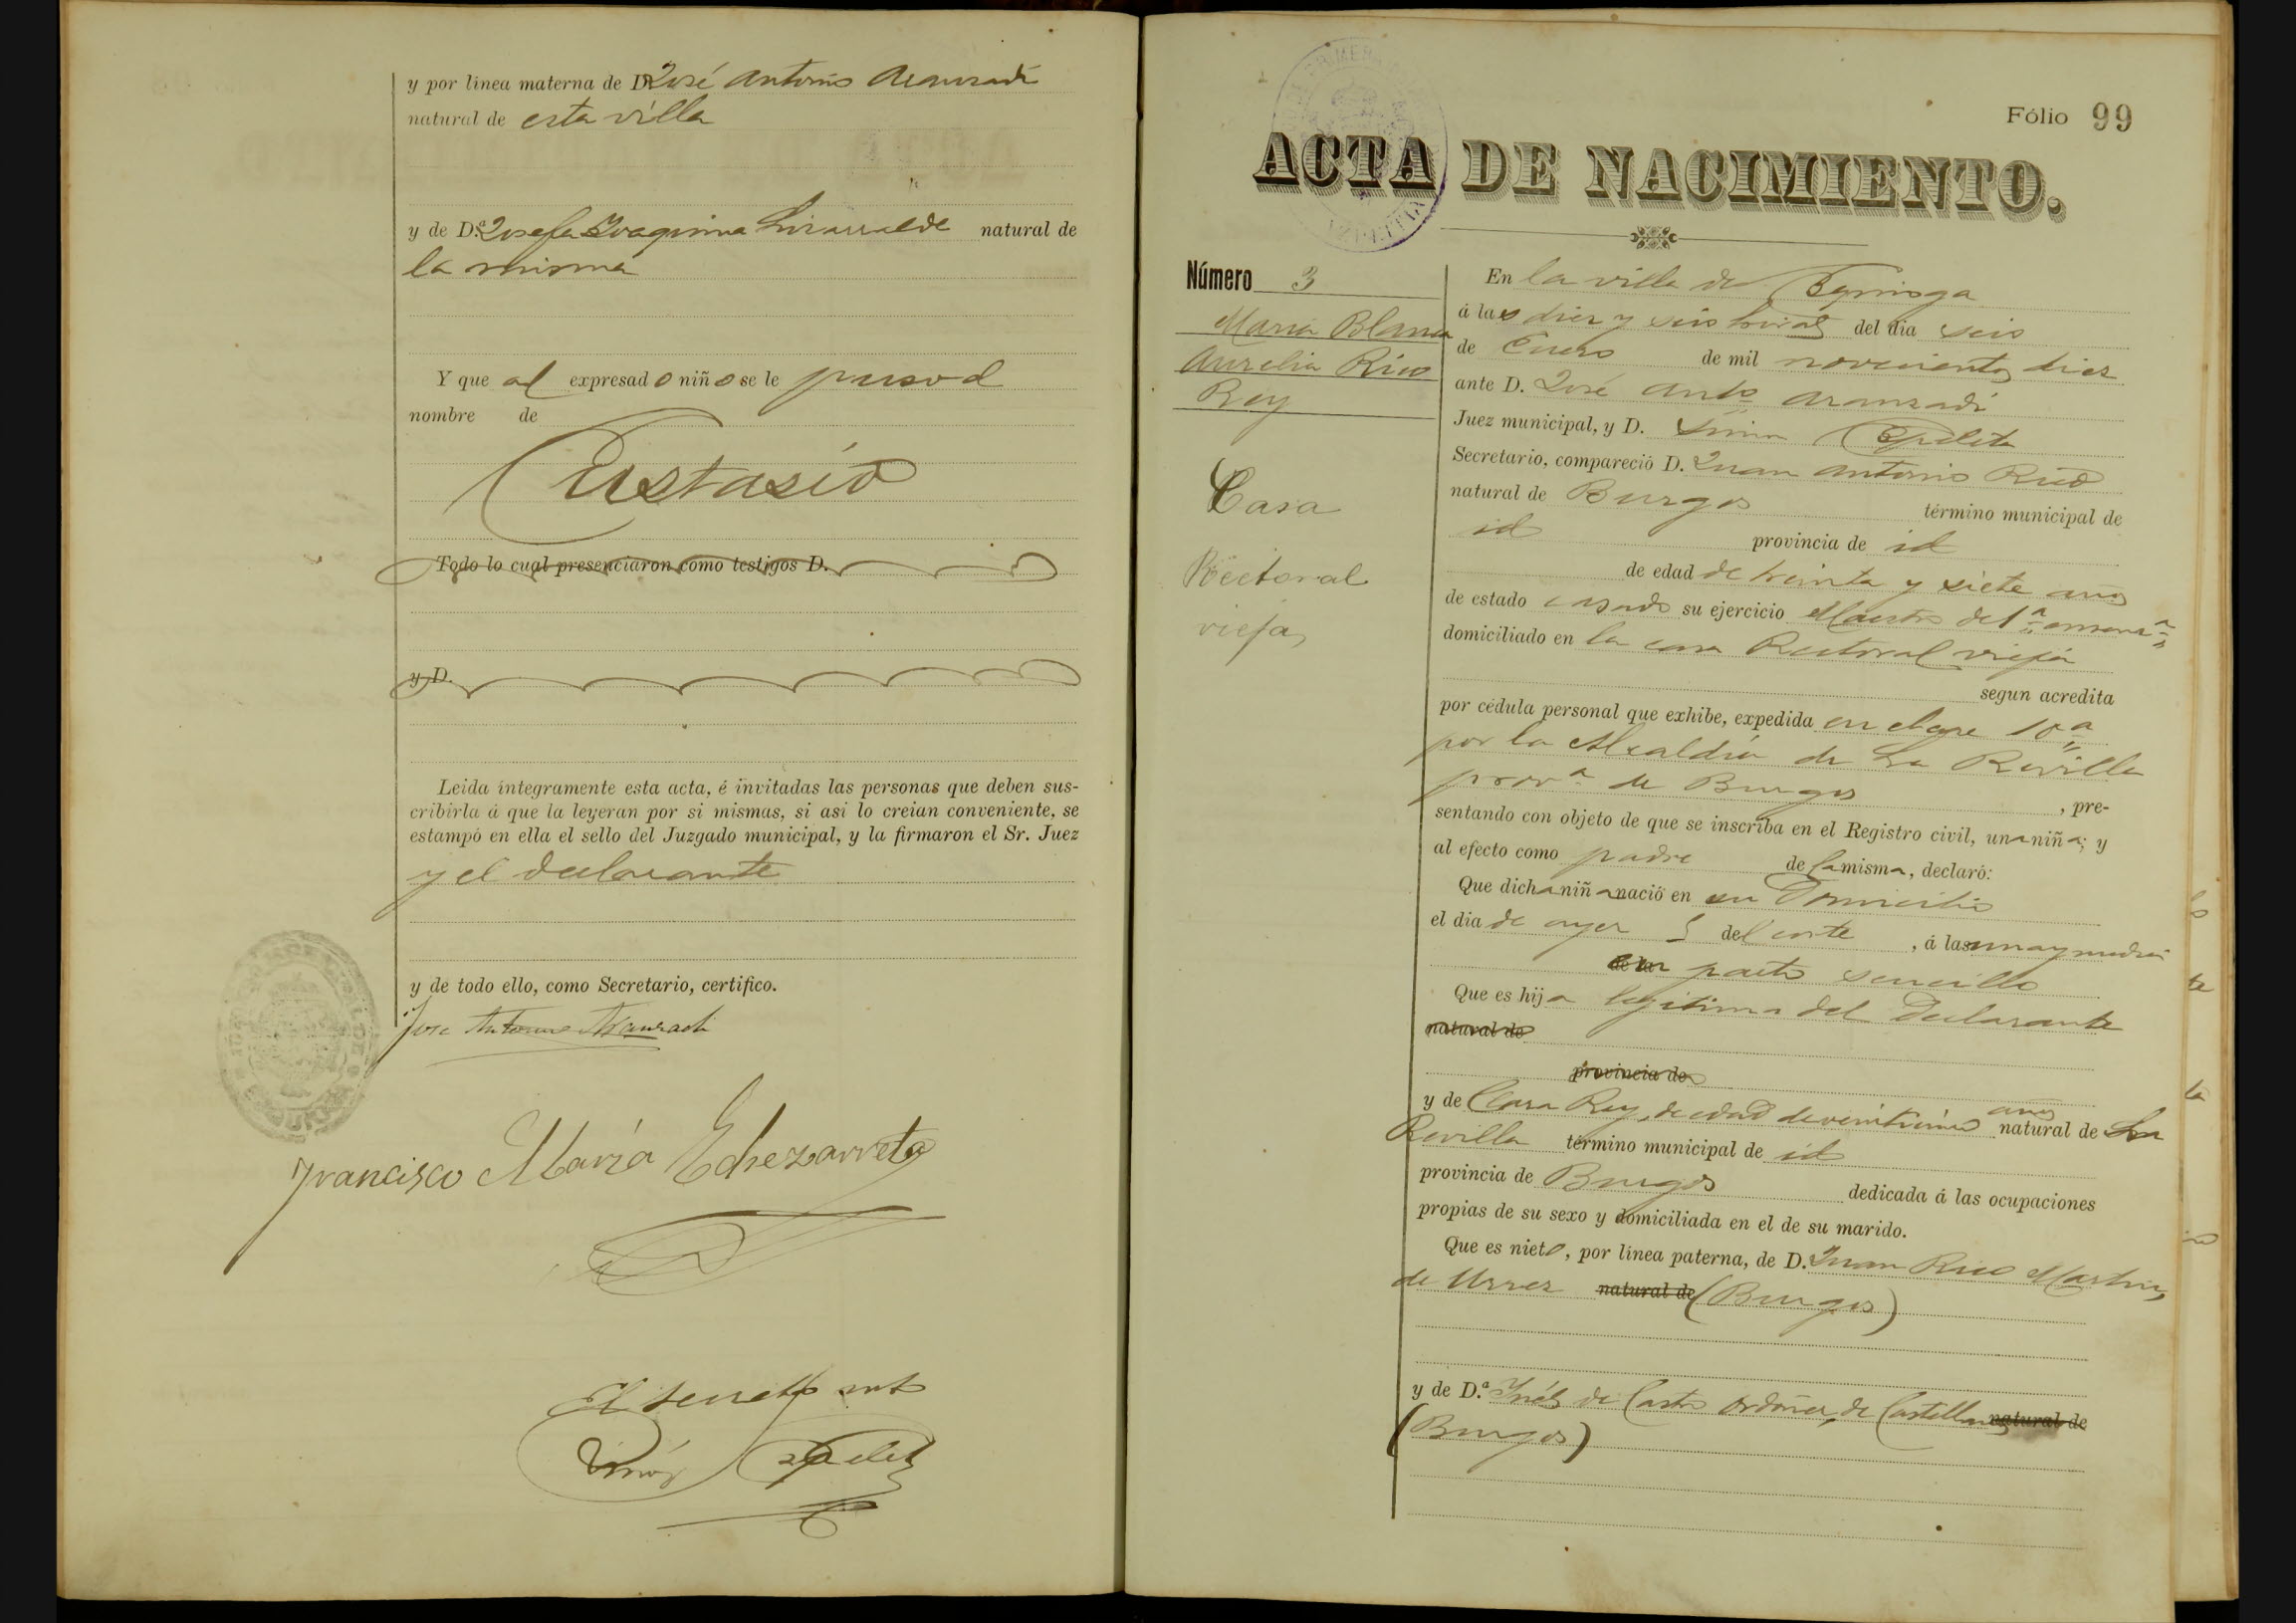 y por linea materna de D. José Antonio Aranzadi
natural de esta villa
y de D.ª Josefa Joaquina Lizarralde natural de
la misma
Y que al expresado niño se le puso el
nombre de
Eustasio
Todo lo cual presenciaron como testigos D.
y D.
Leida íntegramente esta acta, é invitadas las personas que deben sus-
cribirla á que la leyeran por si mismas, si asi lo creian conveniente, se
estampó en ella el sello del Juzgado municipal, y la firmaron el Sr. Juez
y el declarante
y de todo ello, como Secretario, certifico.
José Antonio Aranzadi
Francisco María Echezarreta
El Secret
Fólio 99
ACTA DE NACIMIENTO.
Número 3
Maria Blanca
Aurelia Rico
Rey
Casa
Rectoral
vieja
En la villa de
á las diez y seis horas del dia seis
de Enero de mil novecientos diez
ante D. José Antº Aranzadi
Juez municipal, y D.
Secretario, compareció D. Juan Antonio Rico
natural de Burgos término municipal de
id provincia de id
de edad de treinta y siete años
de estado casado su ejercicio Maestro de 1ª enseñª
domiciliado en la casa Rectoral vieja
segun acredita
por cédula personal que exhibe, expedida en clase 10ª
por la Alcaldía de La Revilla
provª de Burgos , pre-
sentando con objeto de que se inscriba en el Registro civil, una niña; y
al efecto como padre de la misma, declaró:
Que dicha niña nació en su Domicilio
el dia de ayer 5 del corte , á las una y media
de la en parto sencillo
Que es hija legitima del Declarante
natural de
provincia de
y de Clara Rey, de edad de años natural de La
Revilla término municipal de id
provincia de Burgos dedicada á las ocupaciones
propias de su sexo y domiciliada en el de su marido.
Que es nieto, por linea paterna, de D. Juan Rico Martin,
de Urrez natural de (Burgos)
y de D.ª Inés de Castro Ordoñez, de natural de
(Burgos)